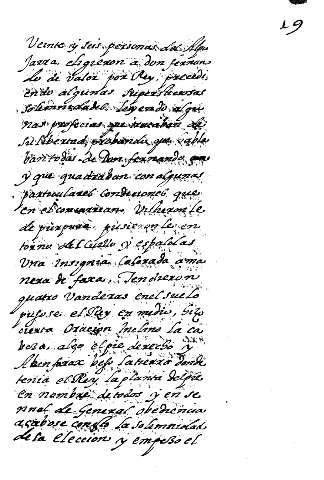 19
Veinte y seis personas del Alpu
Jarra eligieron a don fernan
do de valor por Rey, precedi
endo algunas supersticiosas
solemnidades, leyendo algu
nas profecias que trataban de
su libertad, probando que habla
ban todas de Don fernando
y que quadraban con algunas
particulares condiciones que
en el concurrian. Vistieronle
de purpura, pusieronle en
torno del cuello y espaldas
una insignia colorada a ma
nera de faxa, Tendieron
quatro vanderas en el suelo
pusose el Rey en medio, hizo
cierta Oracion Inclino la ca
veza, alço el pie derecho y
Abenfarax beso la tierra donde
tenia el Rey, la planta del pie
en nombre de todos y en se
nnal de General obediencia
acabose con esto la solemnidad
de la eleccion y empezo el